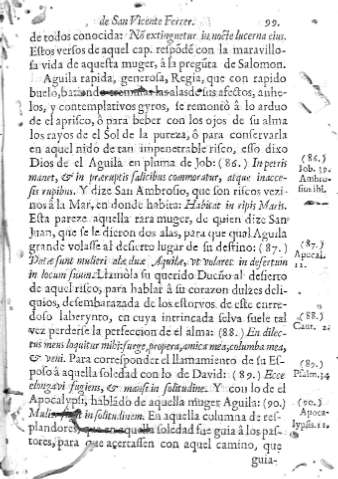 de San Vicente Ferrer. 99.
de todos conocida: Nõ extinguetur in nocte lucerna eius.
Estos versos de aquel cap. respõdẽ con la maravillo-
sa vida de aquesta muger, à la pregũta de Salomon.
Aguila rapida, generosa, Regia, que con rapido
buelo, batiendo las alas de sus afectos, anhe-
los, y contemplativos gyros, se remontò à lo arduo
de el aprisco, ò para beber con los ojos de su alma
los rayos de el Sol de la pureza, ò para conservarla
en aquel nido de tan impenetrable risco, esso dixo
Dios de el Aguila en pluma de Job: (86.) In petris
manet, & in præruptis silicibus commoratur, atque inacce-
sis rupibus. Y dize San Ambrosio, que son riscos vezi-
nos à la Mar, en donde habita: Habitat in ripis Maris.
Esta pareze aquella rara muger, de quien dize San
Juan, que se le dieron dos alas, para que qual Aguila
grande volasse al desierto lugar de su destino: (87.)
Datæ sunt mulieri alæ duæ Aquilæ, vt volaret in desertum
in locum suum. Llamòla su querido Dueño al desierto
de aquel risco, para hablar à su corazon dulzes deli-
quios, desembarazada de los estorvos de este enrre-
dado laberynto, en cuya intrincada selva suele tal
vez perderse la perfeccion de el alma: (88.) En dilec-
tus meus loquitur mihi: surge, propera, amica mea, columba mea,
& veni. Para corresponder el llamamiento de su Es-
poso à aquella soledad con lo de David: (89.) Ecce
elongavi fugiens, & mansi in solitudine. Y con lo de el
Apocalypsi, hablãdo de aquella muger Aguila: (90.)
Mulier fugit in solitudinem. En aquella columna de res-
plandores, que en aquella soledad fue guia à los pas-
tores, para que acertassen con aquel camino, que
guia-
(86.)
Job. 39.
Ambro-
sius ibi.
(87.)
Apocal.
12.
(88.)
Cant. 2.
(89.)
Psalm. 54
(90.)
Apoca-
lypsis. 12.